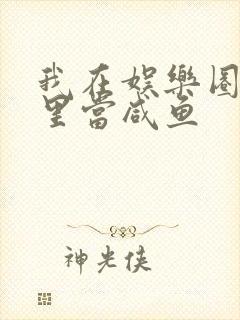 我在娱樂圈
里當咸鱼
神光侠